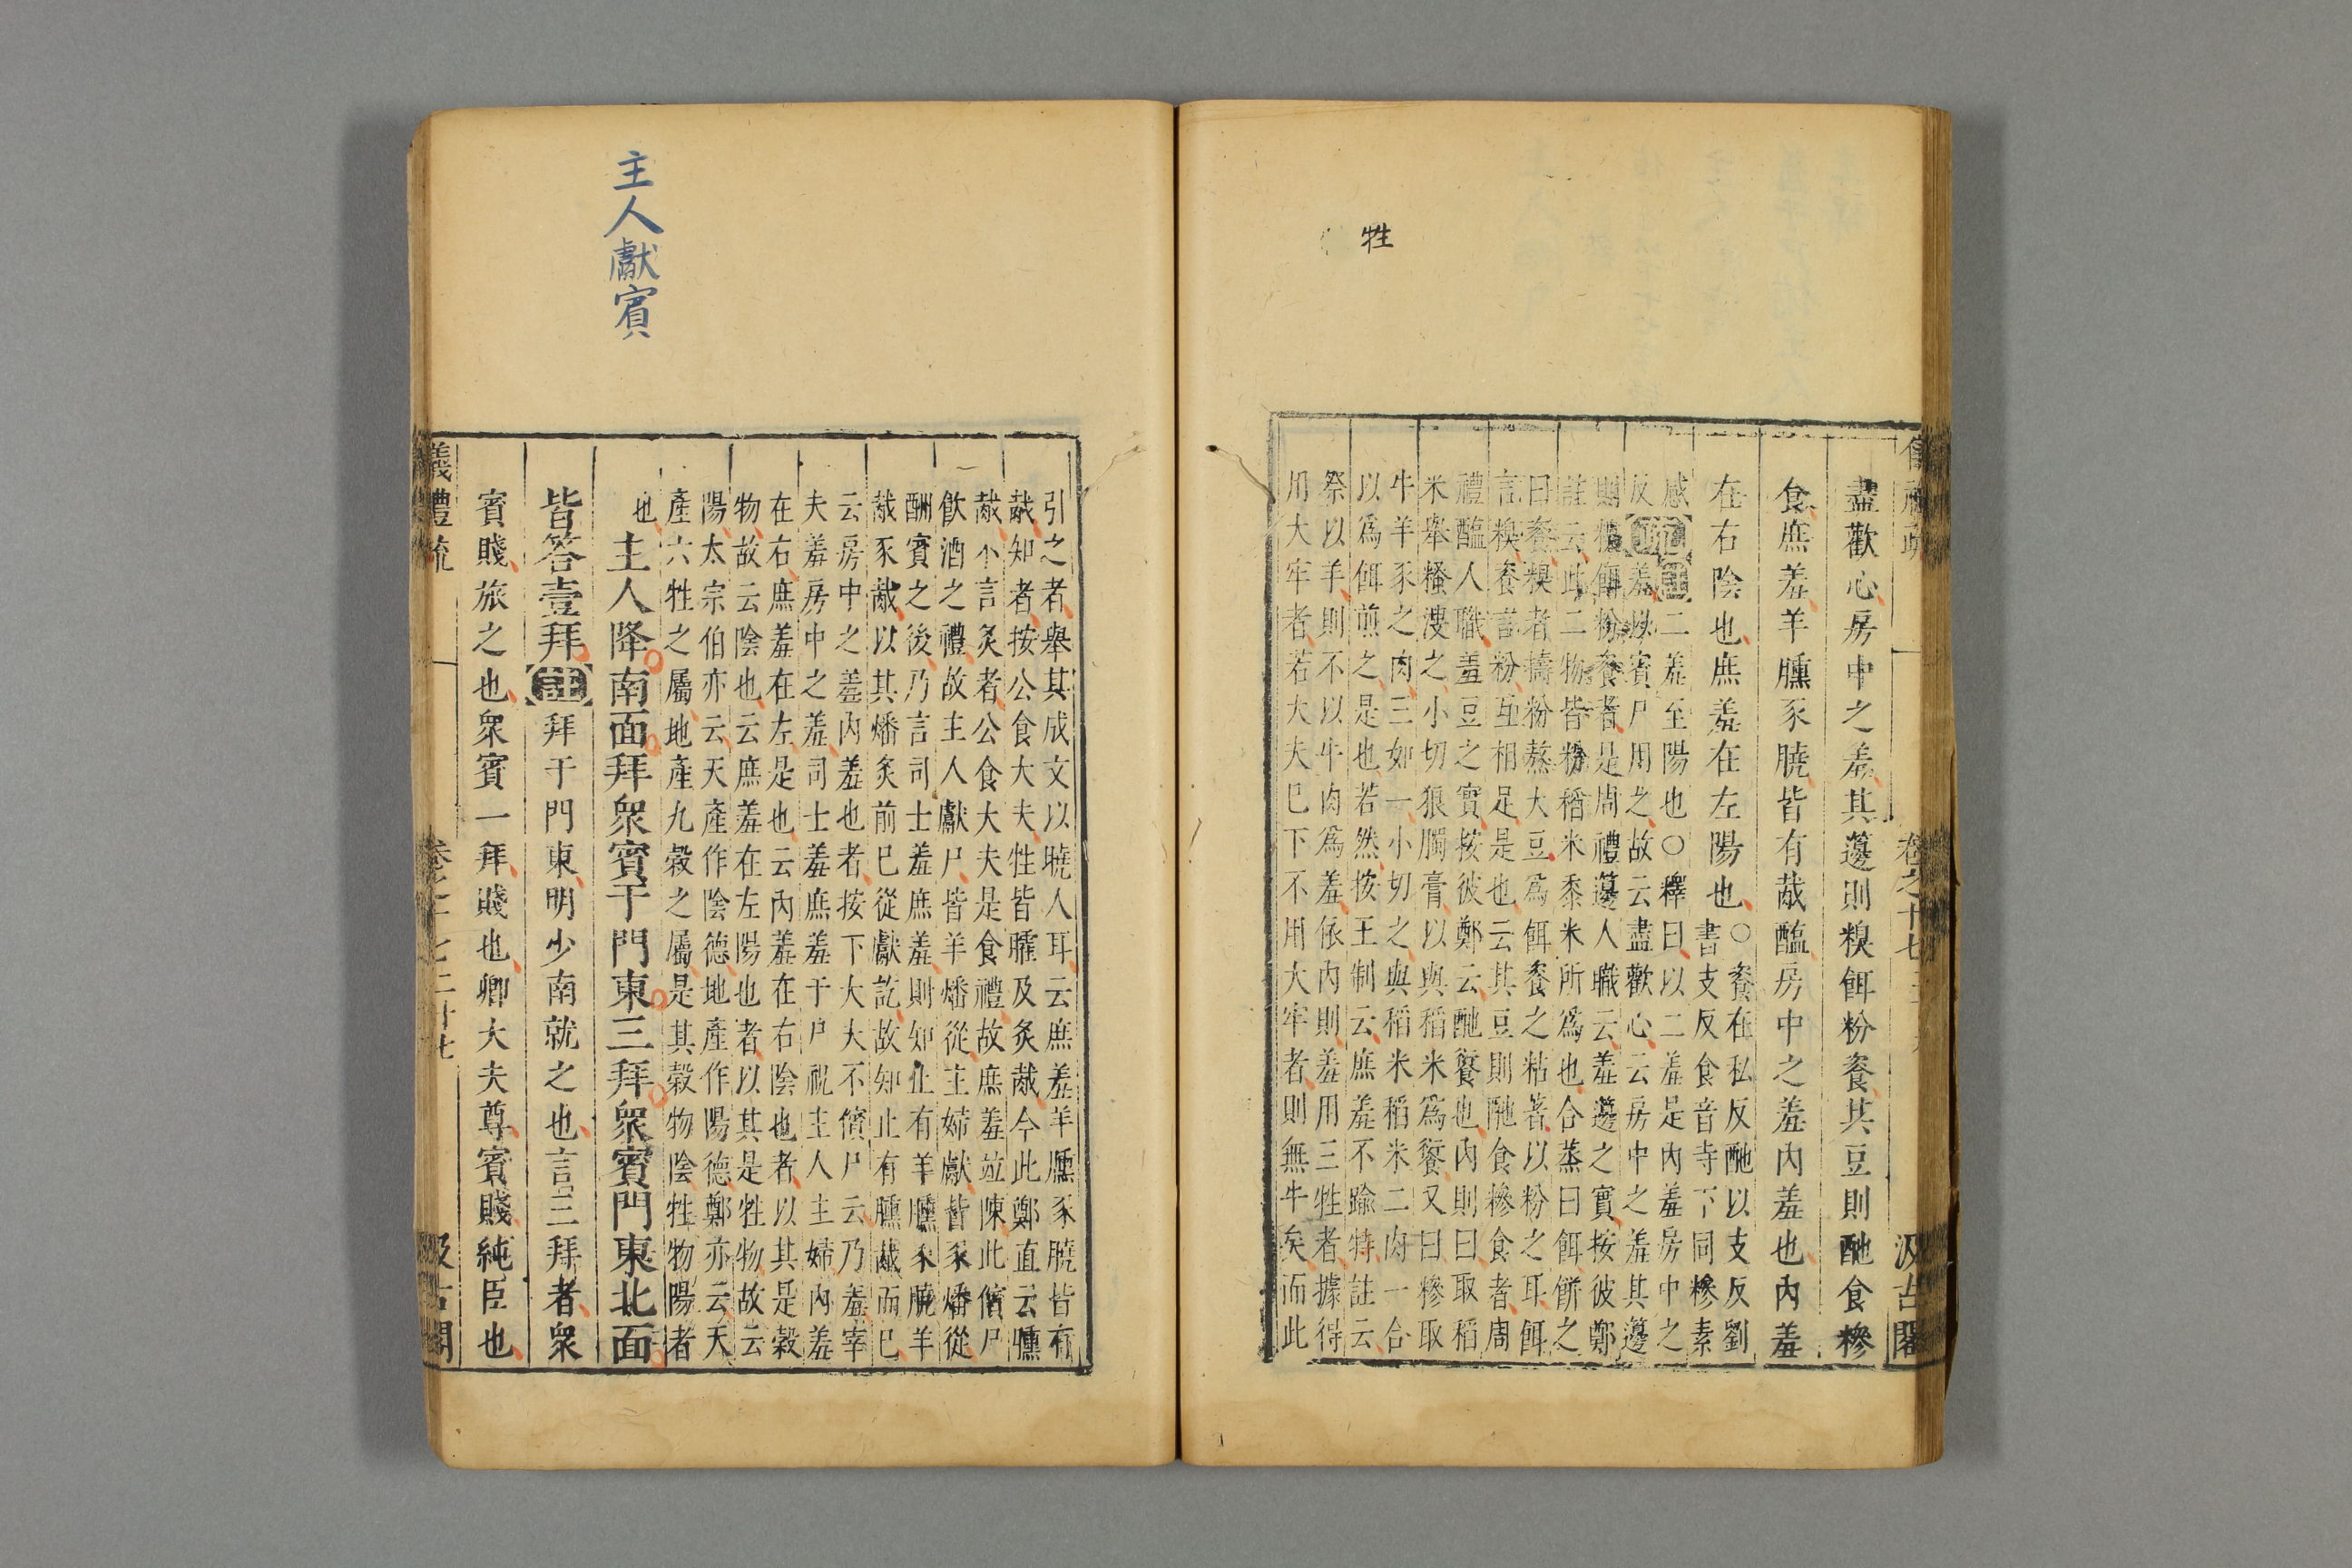 牲
盡歡心房中之羞其籩則糗餌粉餈其豆則酏食糝
食庶羞羊臐豕膮皆有胾醢房中之羞內羞也內羞
在右陰也庶羞在左陽也○餈在私反酏以支反劉
書支反食音寺下同糝素
感
反疏羞以賓尸用之故云盡歡心云房中之羞其籩
註二羞至陽也○釋曰以二羞是內羞房中之
則糗餌粉餈者是周禮籩人職云羞籩之實按彼鄭
註云此二物皆粉稻米黍米所為也合蒸曰餌餅之
曰餈糗者擣粉熬大豆為餌餈之粘著以粉之耳餌
言糗餈言粉互相足是也云其豆則酏食糝食者周
禮醢人職羞豆之實按彼鄭云酏餐也內則曰取稻
米舉糔溲之小切狼臅膏以與稻米為餐又曰糝取
牛羊豕之肉三如一小切之與稻米稻米二肉一合
以爲餌煎之是也若然按王制云庶羞不踰特註云
祭以羊則不以牛肉爲羞依內則羞用三牲者據得
用大牢者若大夫巳下不用大牢者則無牛矣而此
儀禮疏
卷之十七
汲古閣
主人獻賓
引之者舉其成文以曉人耳云庶羞羊臐豕膮皆有
胾知者按公食大夫牲皆臛及炙胾今此鄭直云臐
胾不言炙者公食大夫是食禮故庶羞竝陳此儐尸
飲酒之禮故主人獻尸皆羊燔從主婦獻皆豕燔從
酬賓之後乃言司士羞庶羞則知止有羊臐豕膮羊
胾豕胾以其燔炙前巳從獻訖故知止有臐胾而巳
云房中之羞內羞也者按下大夫不儐尸云乃羞宰
夫羞房中之羞司士羞庶羞于尸祝主人主婦內羞
在右庶羞在左是也云內羞在右陰也者以其是穀
物故云陰也云庶羞在左陽也者以其是牲物故云
陽太宗伯亦云天產作陰德地產作陽德鄭亦云天
產六牲之屬地產九穀之屬是其穀物陰牲物陽者
也
主人降南面拜衆賓于門東三拜衆賓門東北面
皆答壹拜註拜于門東明少南就之也言三拜者衆
賓賤旅之也衆賓一拜賤也卿大夫尊賓賤純臣也
儀禮疏